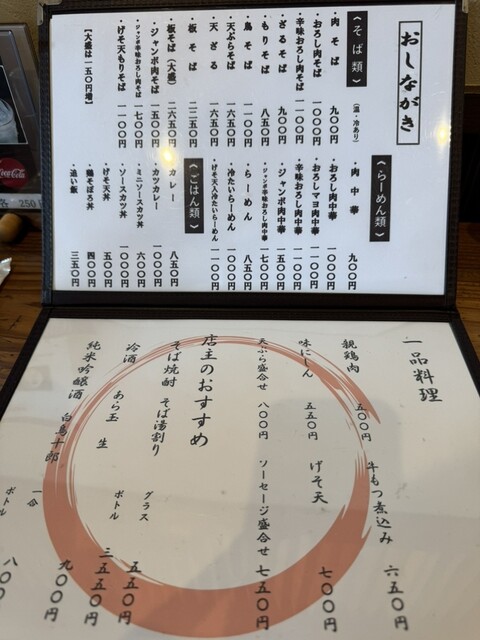 おしながき
《そば類》
(温・冷あり)
・肉そば 九〇〇円
・おろし肉そば 一〇〇〇円
・辛味おろし肉そば 一一〇〇円
・ざるそば 九〇〇円
・もりそば 八五〇円
・鳥そば 一一〇〇円
・天ぷらそば 一六五〇円
・天ざる 一六五〇円
・板そば 二二五〇円
・板そば(大盛) 二六五〇円
・ジャンボ肉そば 一五〇〇円
・ジャンボ辛味おろし肉そば 一七〇〇円
・げそ天もりそば 一一〇〇円
【大盛は一五〇円増】
《らーめん類》
・肉中華 九〇〇円
・おろし肉中華 一〇〇〇円
・おろしマヨ肉中華 一一〇〇円
・辛味おろし肉中華 一一〇〇円
・ジャンボ肉中華 一五〇〇円
・ジャンボ辛味おろし肉中華 一七〇〇円
・らーめん 八五〇円
・冷たいらーめん
・げそ天入冷たいらーめん
《ごはん類》
・カレー 八五〇円
・カツカレー 一〇〇〇円
・ミニソースカツ丼 六〇〇円
・ソースカツ丼 一〇〇〇円
・げそ天丼 五〇〇円
・鶏そぼろ丼 四〇〇円
・追い飯 三五〇円
一品料理
親鶏肉 五〇〇円
牛もつ煮込み 六五〇円
味にしん 五五〇円
げそ天 七〇〇円
天ぷら盛合せ 八〇〇円
ソーセージ盛合せ 七五〇円
店主のおすすめ
そば焼酎 そば湯割り
グラス 五五〇円
ボトル 三五五〇円
冷酒 あら玉 生 九〇〇円
純米吟醸酒 白鳥十郎
一合
ボトル
Coca-Cola
250円